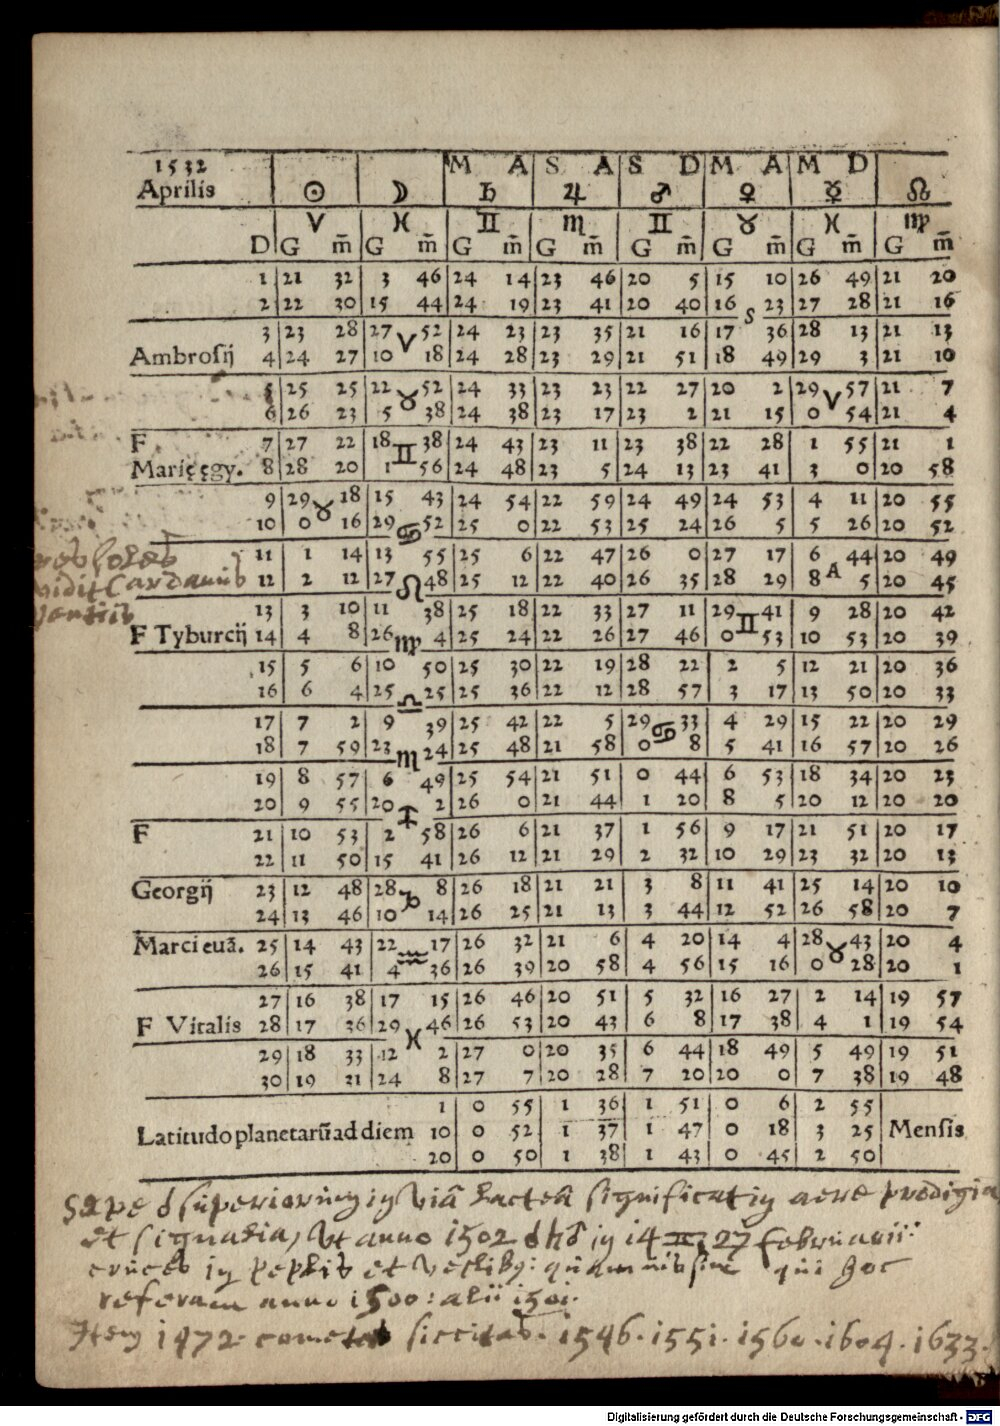 1532 M A S A S D M A M D
Aprilis ☉ ☽ ♄ ♃ ♂ ♀ ☿ ☊
♈ ♓ ♊ ♏ ♊ ♉ ♓ ♍
D G m̄ G m̄ G m̄ G m̄ G m̄ G m̄ G m̄ G m̄
1 21 32 3 46 24 14 23 46 20 5 15 10 26 49 21 20
2 22 30 15 44 24 19 23 41 20 40 16 S 23 27 28 21 16
3 23 28 27 ♈ 52 24 23 23 35 21 16 17 36 28 13 21 13
Ambrosij 4 24 27 10 18 24 28 23 29 21 51 18 49 29 3 21 10
5 25 25 22 ♉ 52 24 33 23 23 22 27 20 2 29 ♈ 57 21 7
6 26 23 5 38 24 38 23 17 23 2 21 15 0 54 21 4
F 7 27 22 18 ♊ 38 24 43 23 11 23 38 22 28 1 55 21 1
Marię ęgy. 8 28 20 1 56 24 48 23 5 24 13 23 41 3 0 20 58
9 29 ♉ 18 15 43 24 54 22 59 24 49 24 53 4 11 20 55
10 0 16 29 ♋ 52 25 0 22 53 25 24 26 5 5 26 20 52
11 1 14 13 55 25 6 22 47 26 0 27 17 6 A 44 20 49
12 2 12 27 ♌ 48 25 12 22 40 26 35 28 29 8 5 20 45
vidit Cardanus
13 3 10 11 38 25 18 22 33 27 11 29 ♊ 41 9 28 20 42
F Tyburcij 14 4 8 26 ♍ 4 25 24 22 26 27 46 0 53 10 53 20 39
15 5 6 10 50 25 30 22 19 28 22 2 5 12 21 20 36
16 6 4 25 ♎ 25 25 36 22 12 28 57 3 17 13 50 20 33
17 7 2 9 39 25 42 22 5 29 ♋ 33 4 29 15 22 20 29
18 7 59 23 ♏ 24 25 48 21 58 0 8 5 41 16 57 20 26
19 8 57 6 49 25 54 21 51 0 44 6 53 18 34 20 23
20 9 55 20 ♐ 2 26 0 21 44 1 20 8 5 20 12 20 20
F 21 10 53 2 58 26 6 21 37 1 56 9 17 21 51 20 17
22 11 50 15 41 26 12 21 29 2 32 10 29 23 32 20 13
Georgij 23 12 48 28 ♑ 8 26 18 21 21 3 8 11 41 25 14 20 10
24 13 46 10 14 26 25 21 13 3 44 12 52 26 58 20 7
Marci euā. 25 14 43 22 ♒ 17 26 32 21 6 4 20 14 4 28 ♉ 43 20 4
26 15 41 4 36 26 39 20 58 4 56 15 16 0 28 20 1
27 16 38 17 15 26 46 20 51 5 32 16 27 2 14 19 57
F Vitalis 28 17 36 29 ♓ 46 26 53 20 43 6 8 17 38 4 1 19 54
29 18 33 12 2 27 0 20 35 6 44 18 49 5 49 19 51
30 19 31 24 8 27 7 20 28 7 20 20 0 7 38 19 48
1 0 55 1 36 1 51 0 6 2 55
Latitudo planetarū ad diem 10 0 52 1 37 1 47 0 18 3 25 Mensis
20 0 50 1 38 1 43 0 45 2 50
Sæpe ☌ superiorum in viâ lacteâ significatiꝫ aere prodigia
et signacia, vt anno 1502 ☌ ♄ ♂ in 14 ♊ 27 februarii
cruces in peplis et vestibꝫ: qui hoc
referam anno 1500: alii 1501.
Item 1472. cometas siccitas. 1546. 1551. 1560. 1604. 1633.